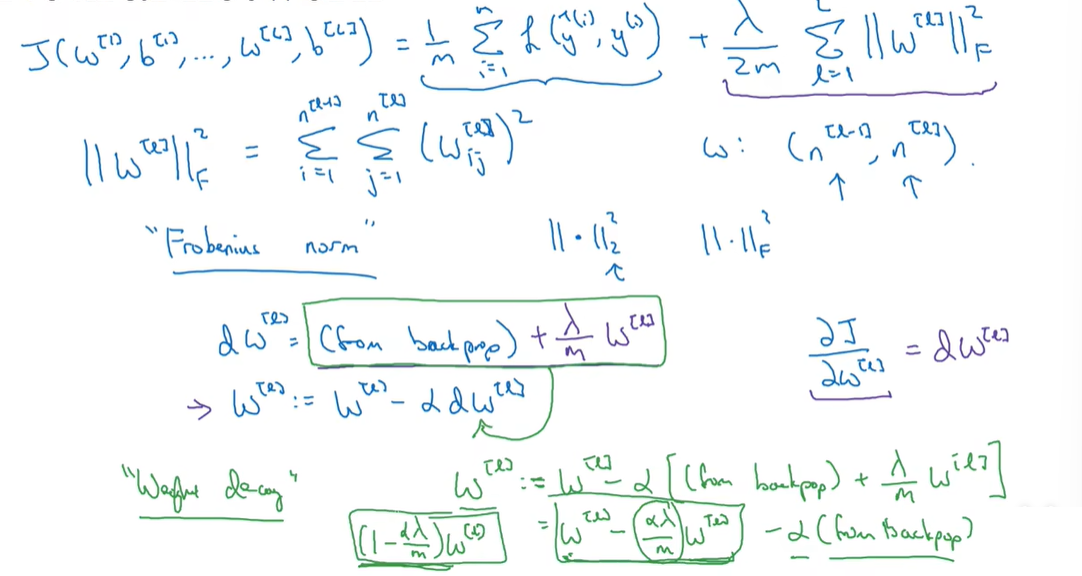 J(w^[1], b^[1], ..., w^[L], b^[L]) = 1/m Σ_{i=1}^{m} ℒ(ŷ^(i), y^(i)) + λ/2m Σ_{l=1}^{L} ||w^[l]||_F^2
||w^[l]||_F^2 = Σ_{i=1}^{n^[l-1]} Σ_{j=1}^{n^[l]} (w_ij^[l])^2    w: (n^[l-1], n^[l]).
"Frobenius norm"    ||·||_2^2    ||·||_F^2
dw^[l] = (from backprop) + λ/m w^[l]    ∂J/∂w^[l] = dw^[l]
→ w^[l] := w^[l] - α dw^[l]
"Weight decay"    w^[l] := w^[l] - α [(from backpop) + λ/m w^[l]]
(1 - αλ/m) w^[l]    = w^[l] - αλ/m w^[l] - α (from backpop)